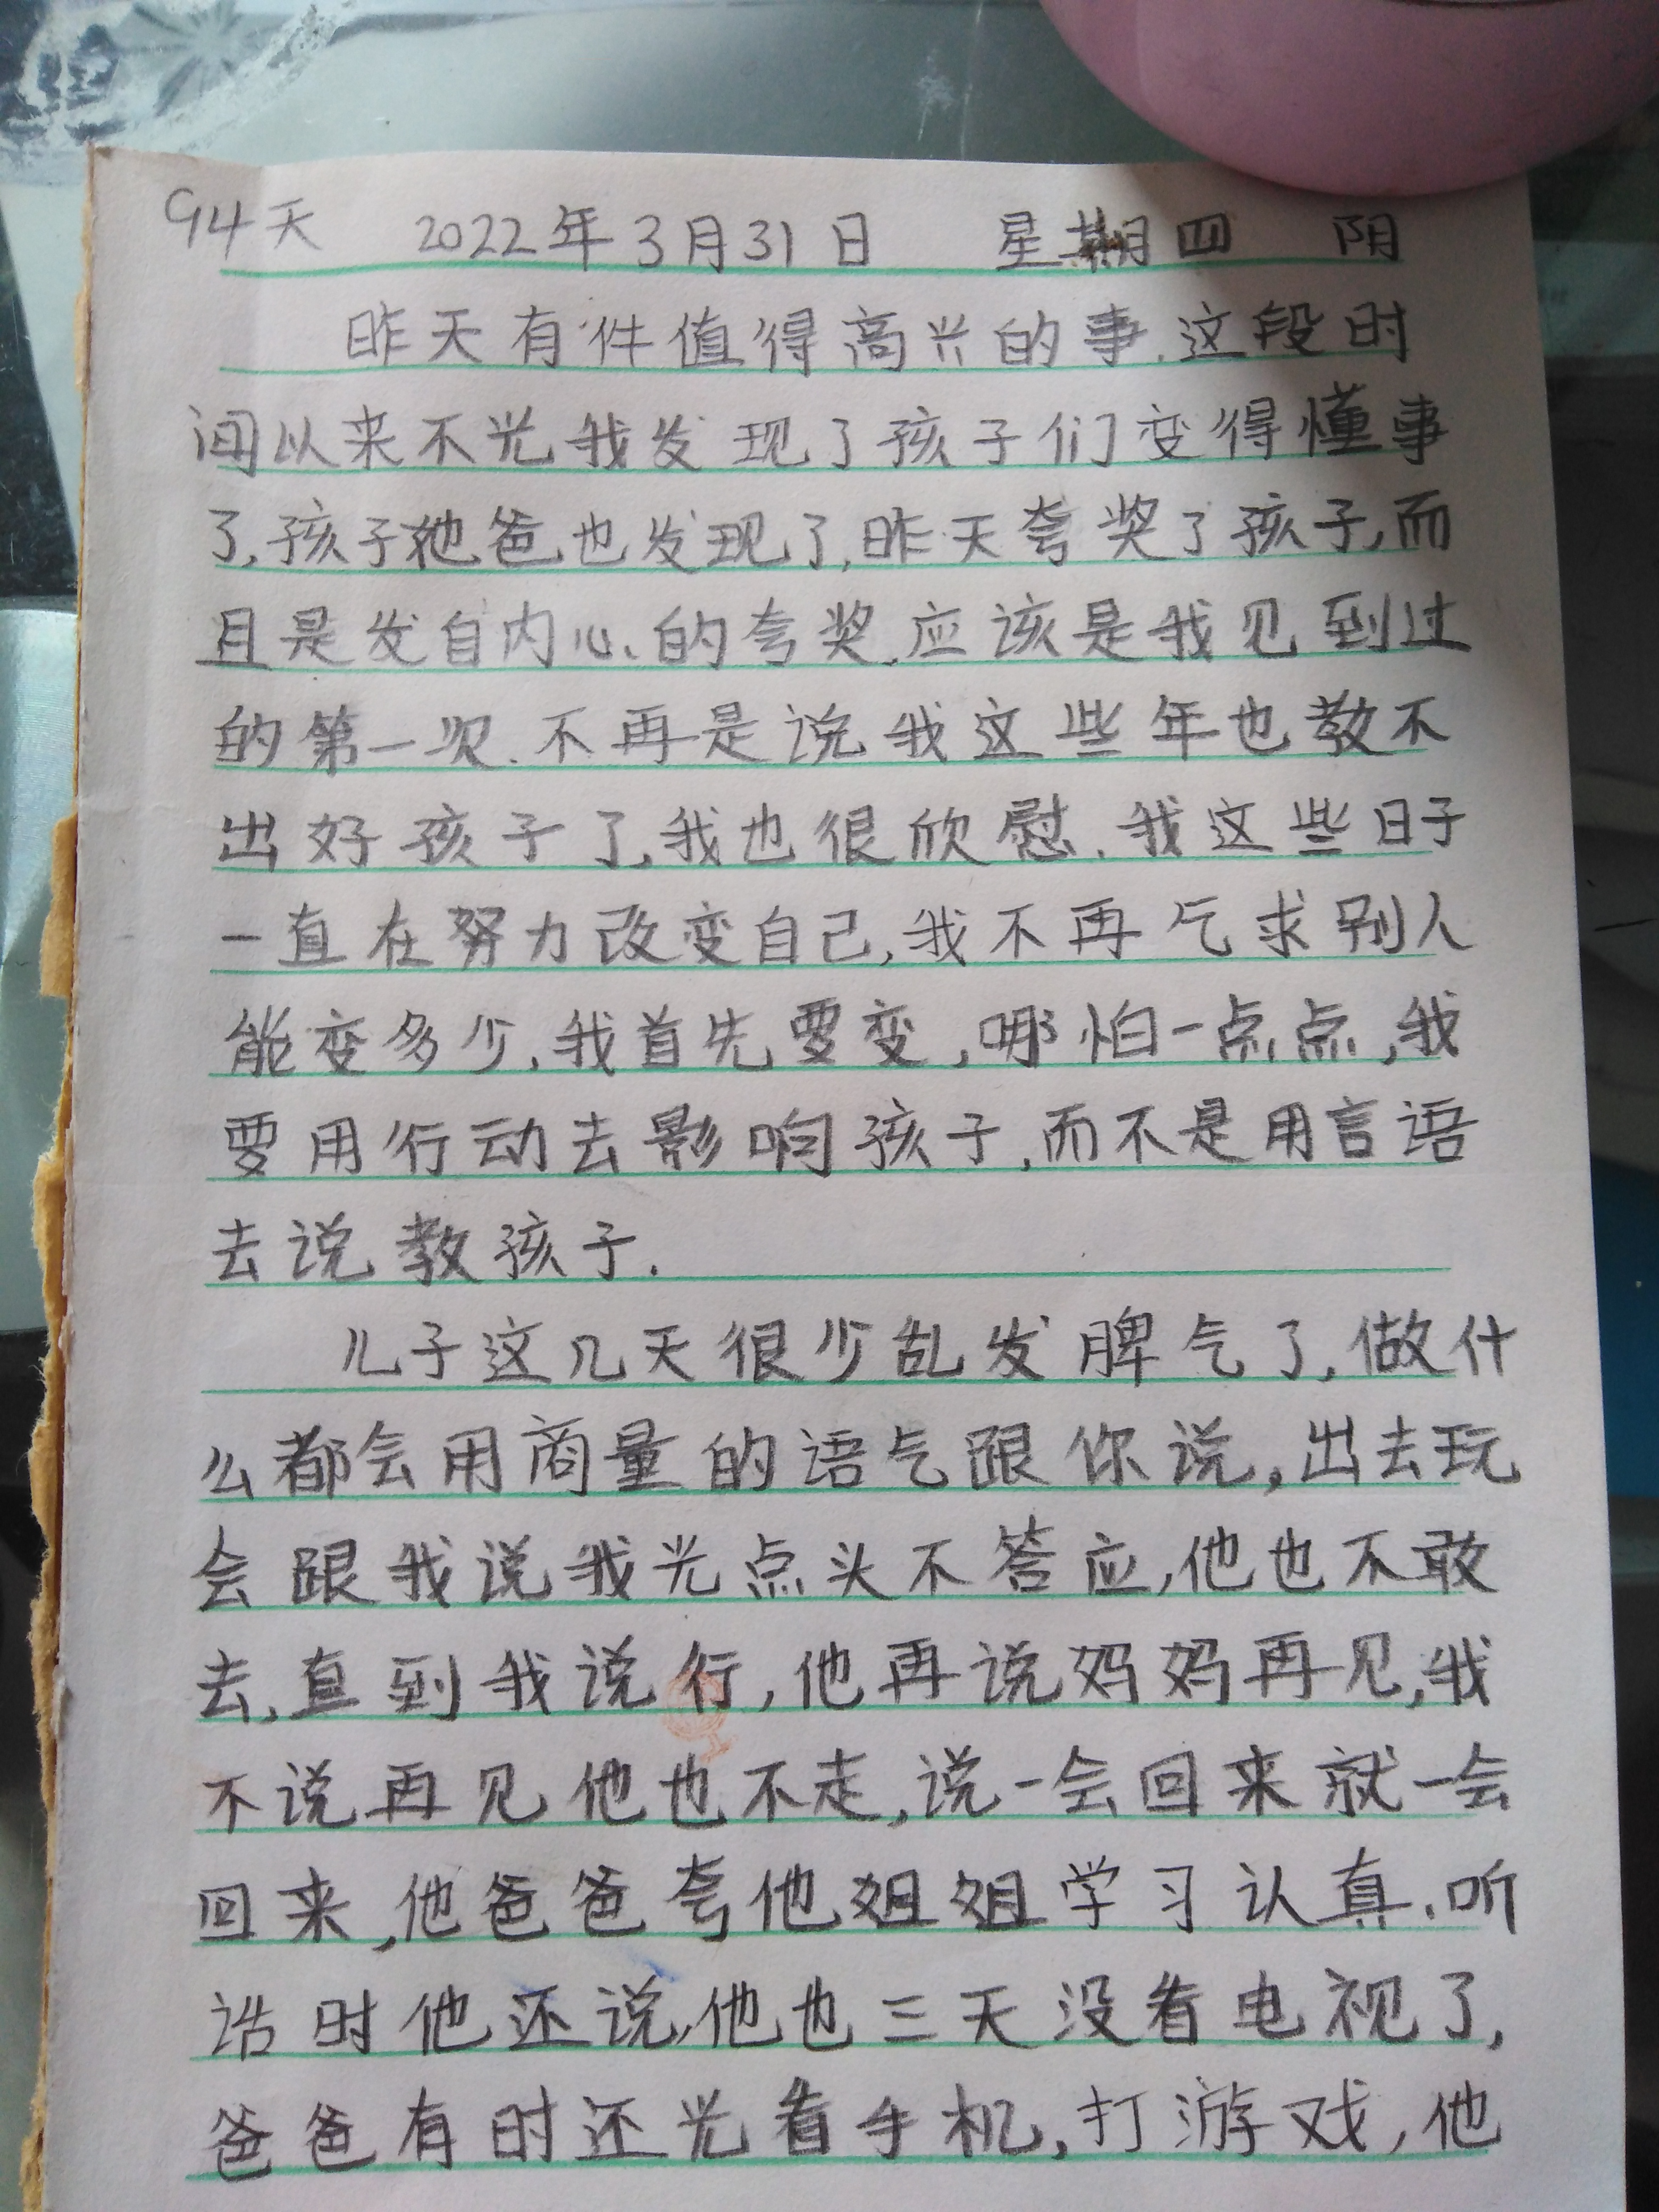 94天 2022年3月31日 星期四 阴
昨天有件值得高兴的事.这段时
间以来不光我发现了孩子们变得懂事
了,孩子他爸也发现了,昨天夸奖了孩子,而
且是发自内心的夸奖.应该是我见到过
的第一次.不再是说我这些年也教不
出好孩子了,我也很欣慰.我这些日子
一直在努力改变自己,我不再乞求别人
能变多少,我首先要变,哪怕一点点,我
要用行动去影响孩子,而不是用言语
去说教孩子.
儿子这几天很少乱发脾气了,做什
么都会用商量的语气跟你说,出去玩
会跟我说我光点头不答应,他也不敢
去,直到我说行,他再说妈妈再见,我
不说再见他也不走,说一会回来就一会
回来,他爸爸夸他姐姐学习认真.听
话时他还说,他也三天没看电视了,
爸爸有时还光看手机,打游戏,他